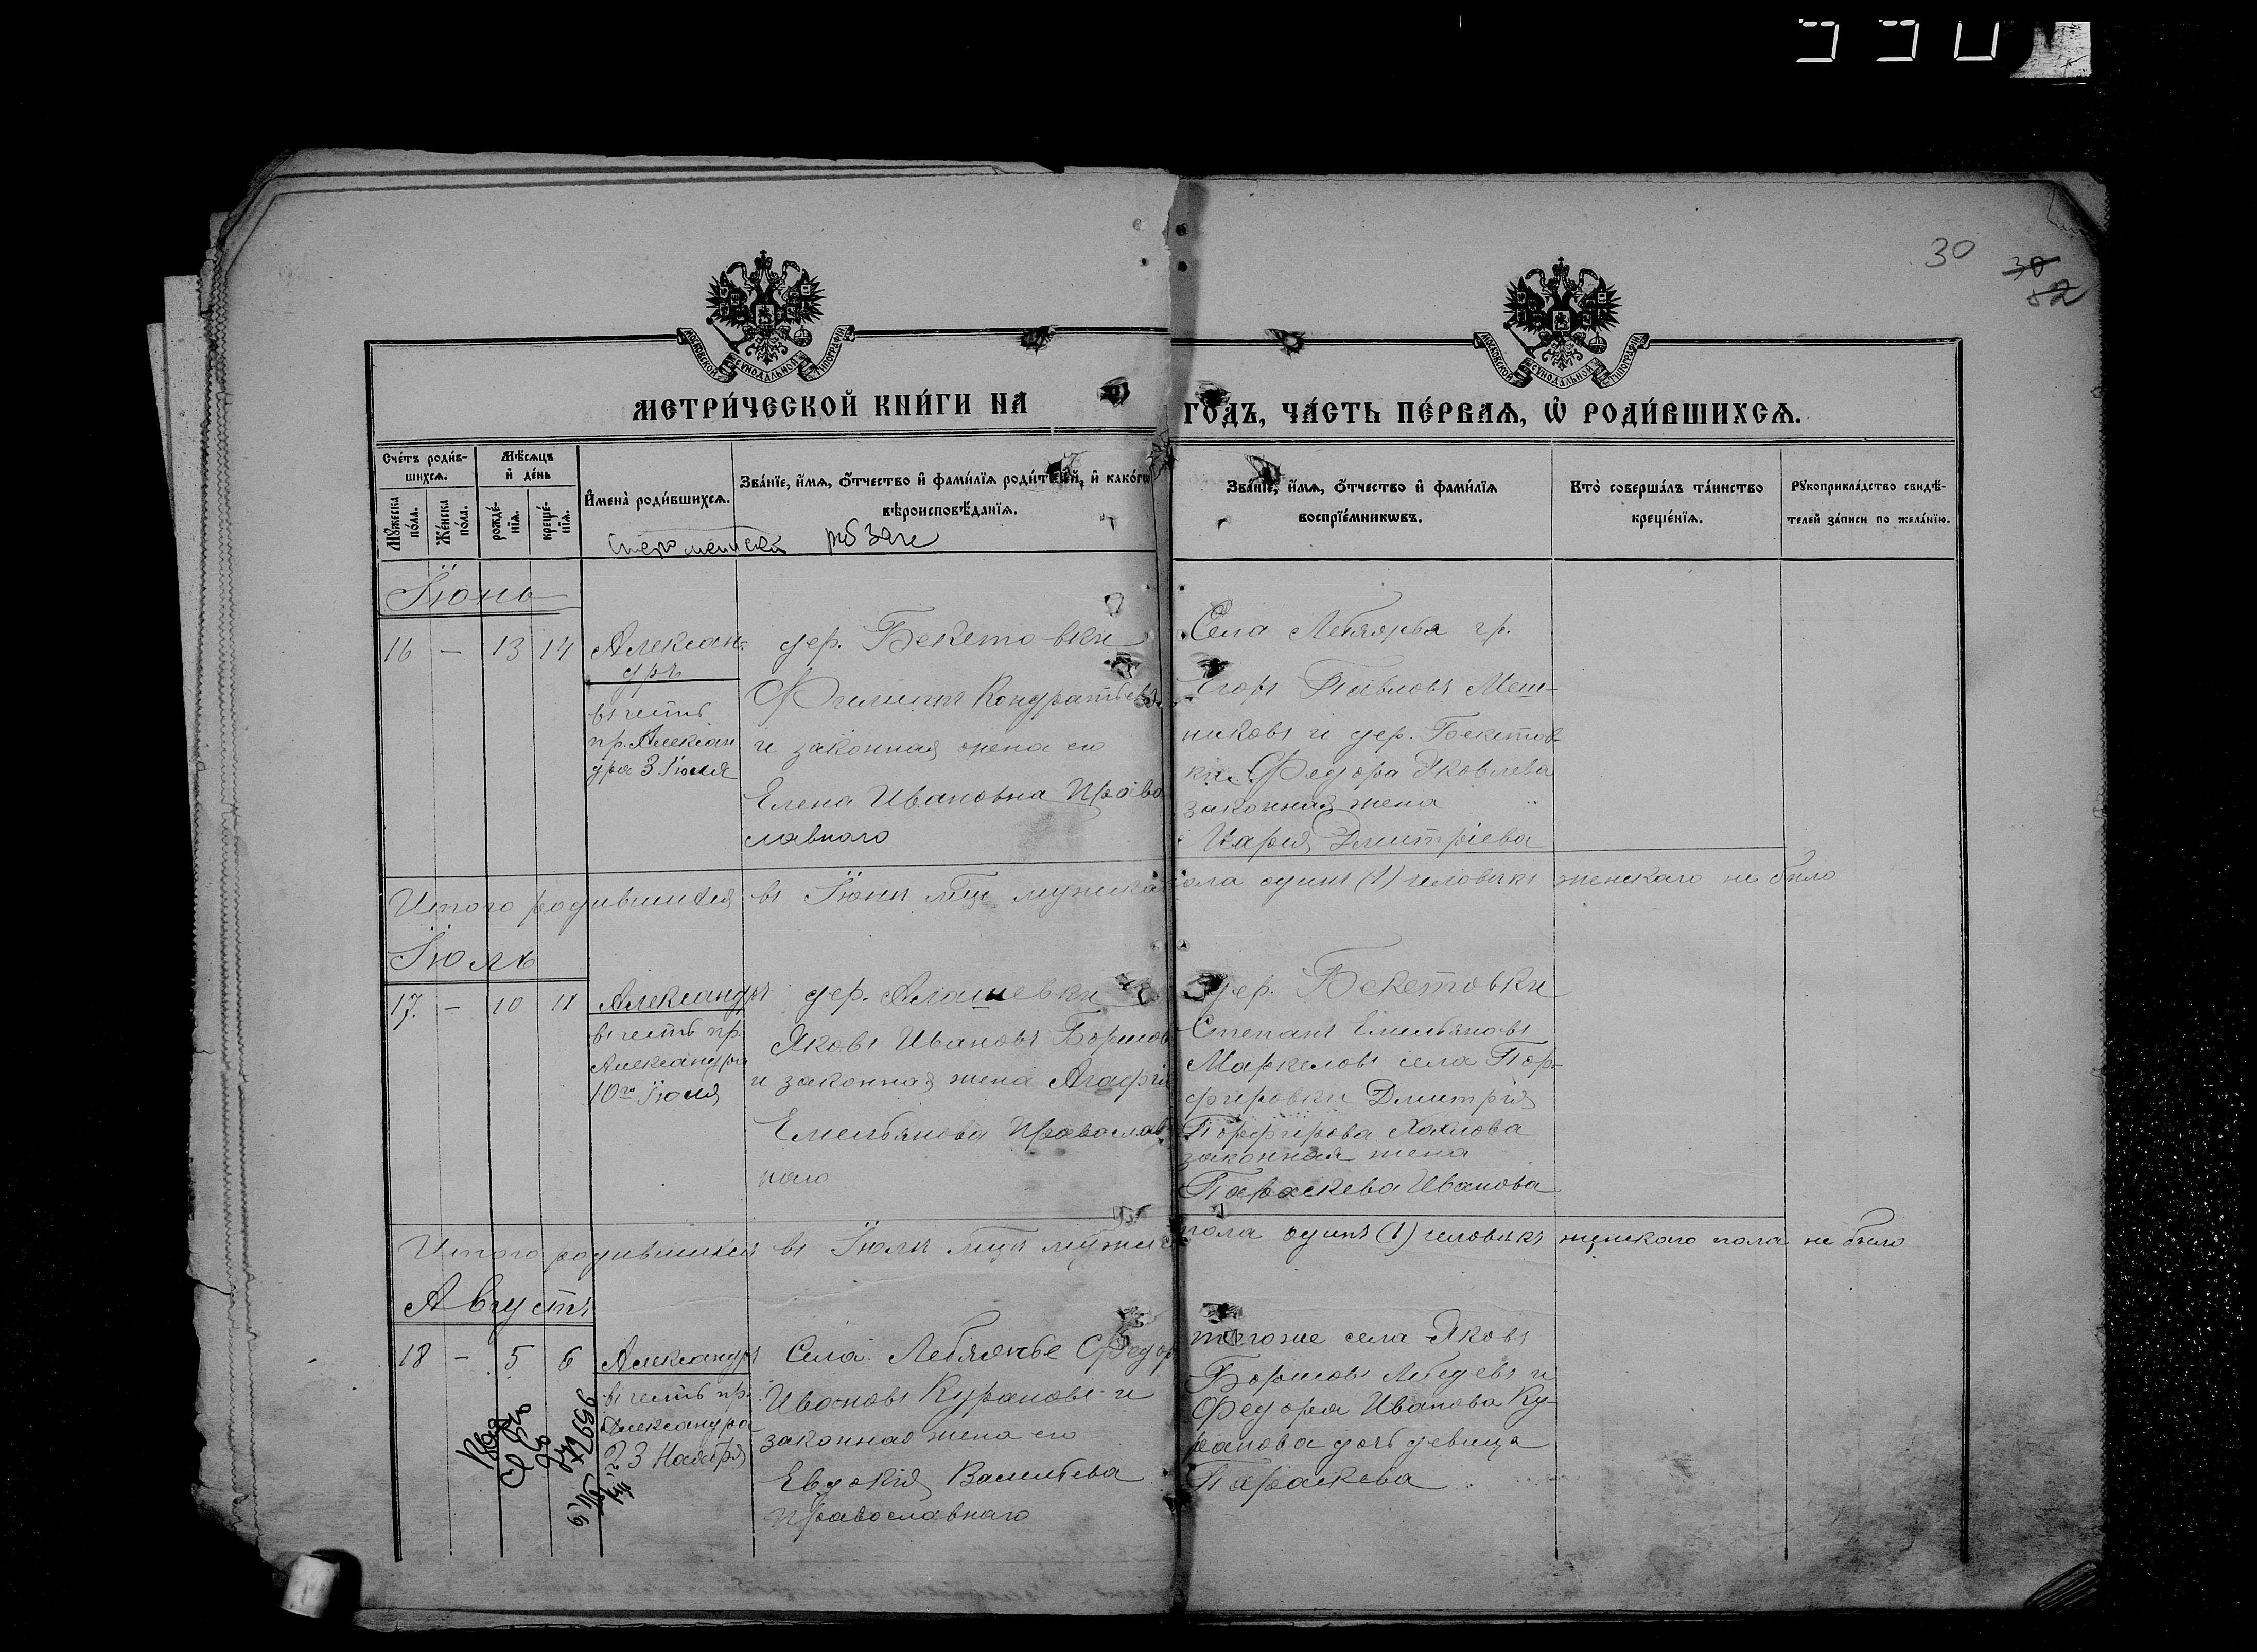 30
30
82
МОСКОВСКОЙ СѴНОДАЛЬНОЙ ТИПОГРАФІИ
МОСКОВСКОЙ СѴНОДАЛЬНОЙ ТИПОГРАФІИ
МЕТРИ́ЧЕСКОЙ КНИ́ГИ НА ГО́ДЪ, ЧА́СТЬ ПЕ́РВАѦ, Ѡ҆ РОДИ́ВШИХСѦ.
Сче́тъ роди́в-
шихсѧ.
Мꙋ́жеска по́ла.
Же́нска по́ла.
Мѣ́сѧцъ
и҆ де́нь
рожде́-
нїѧ.
креще́-
нїѧ.
И҆мена̀ роди́вшихсѧ.
Зва́нїе, и҆́мѧ, ѻ҆́тчество и҆ фами́лїѧ роди́телей, и҆ како́гѡ
вѣроисповѣ́данїѧ.
Зва́нїе, и҆́мѧ, ѻ҆́тчество и҆ фами́лїѧ
воспрїе́мникѡвъ.
Кто̀ соверша́лъ та́инство
креще́нїѧ.
Рꙋкоприкла́дство свидѣ́-
телей за́писи по жела́нїю.
Іюнь
16 – 13 14
Алексан-
дръ
въ честь
пр. Алексан
дра 3 Іюля
дер. Бекетовки
Филиппъ Кондратьевъ
и законная жена его
Елена Ивановна Право
славнаго
Села Лебяжья гр.
Егоръ Павловъ Меш-
никовъ и дер. Бекетов-
ки Федора Яковлева
законная жена
Дмитріева
Итого родившихся въ Іюнѣ мцѣ мужска пола одинъ (1) человѣкъ женскаго не было
Іюль
17. – 10 11
Александръ
въ честь пр.
Александра
10го Іюля
дер. Алашевки
Яковъ Ивановъ Борисов
и законная жена Агафія
Емельянова Православ
наго
дер. Бекетовки
Степанъ Емельяновъ
Маркеловъ села Пор-
фировки Дмитрія
Порфирова
законная жена
Параскева Иванова
Итого родившихся въ Іюлѣ мцѣ мужск пола одинъ (1) человѣкъ женскаго пола не было
Августъ
18 – 5 6
Александръ
въ честь пр.
Александра
23 Ноября
Села Лебяжье Федор
Ивановъ Курановъ и
законная жена его
Евдокія Васильева
Православнаго
тогоже села Яковъ
Борисовъ Лебедевъ и
Федора Иванова Ку-
ранова дочь девица
Параскева